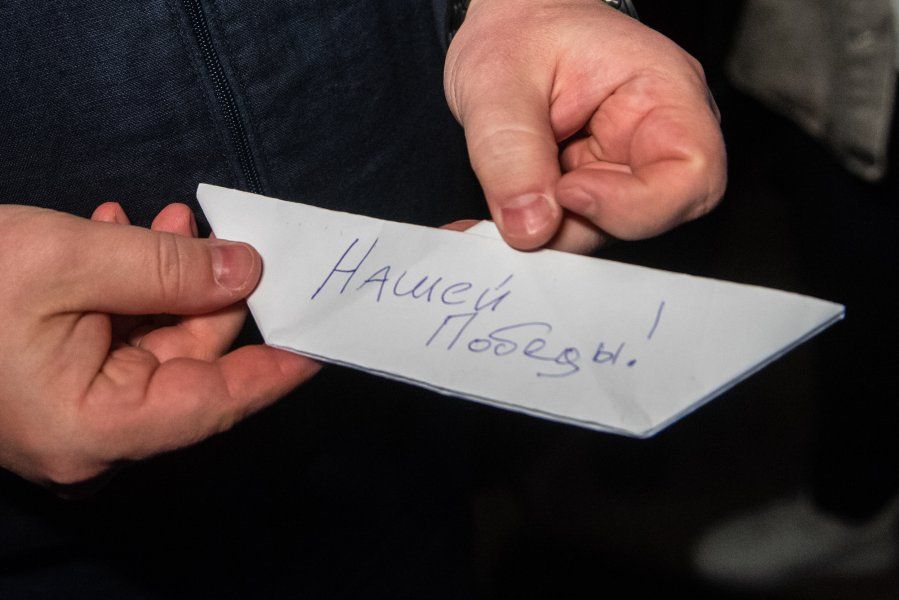 Нашей
Победы!